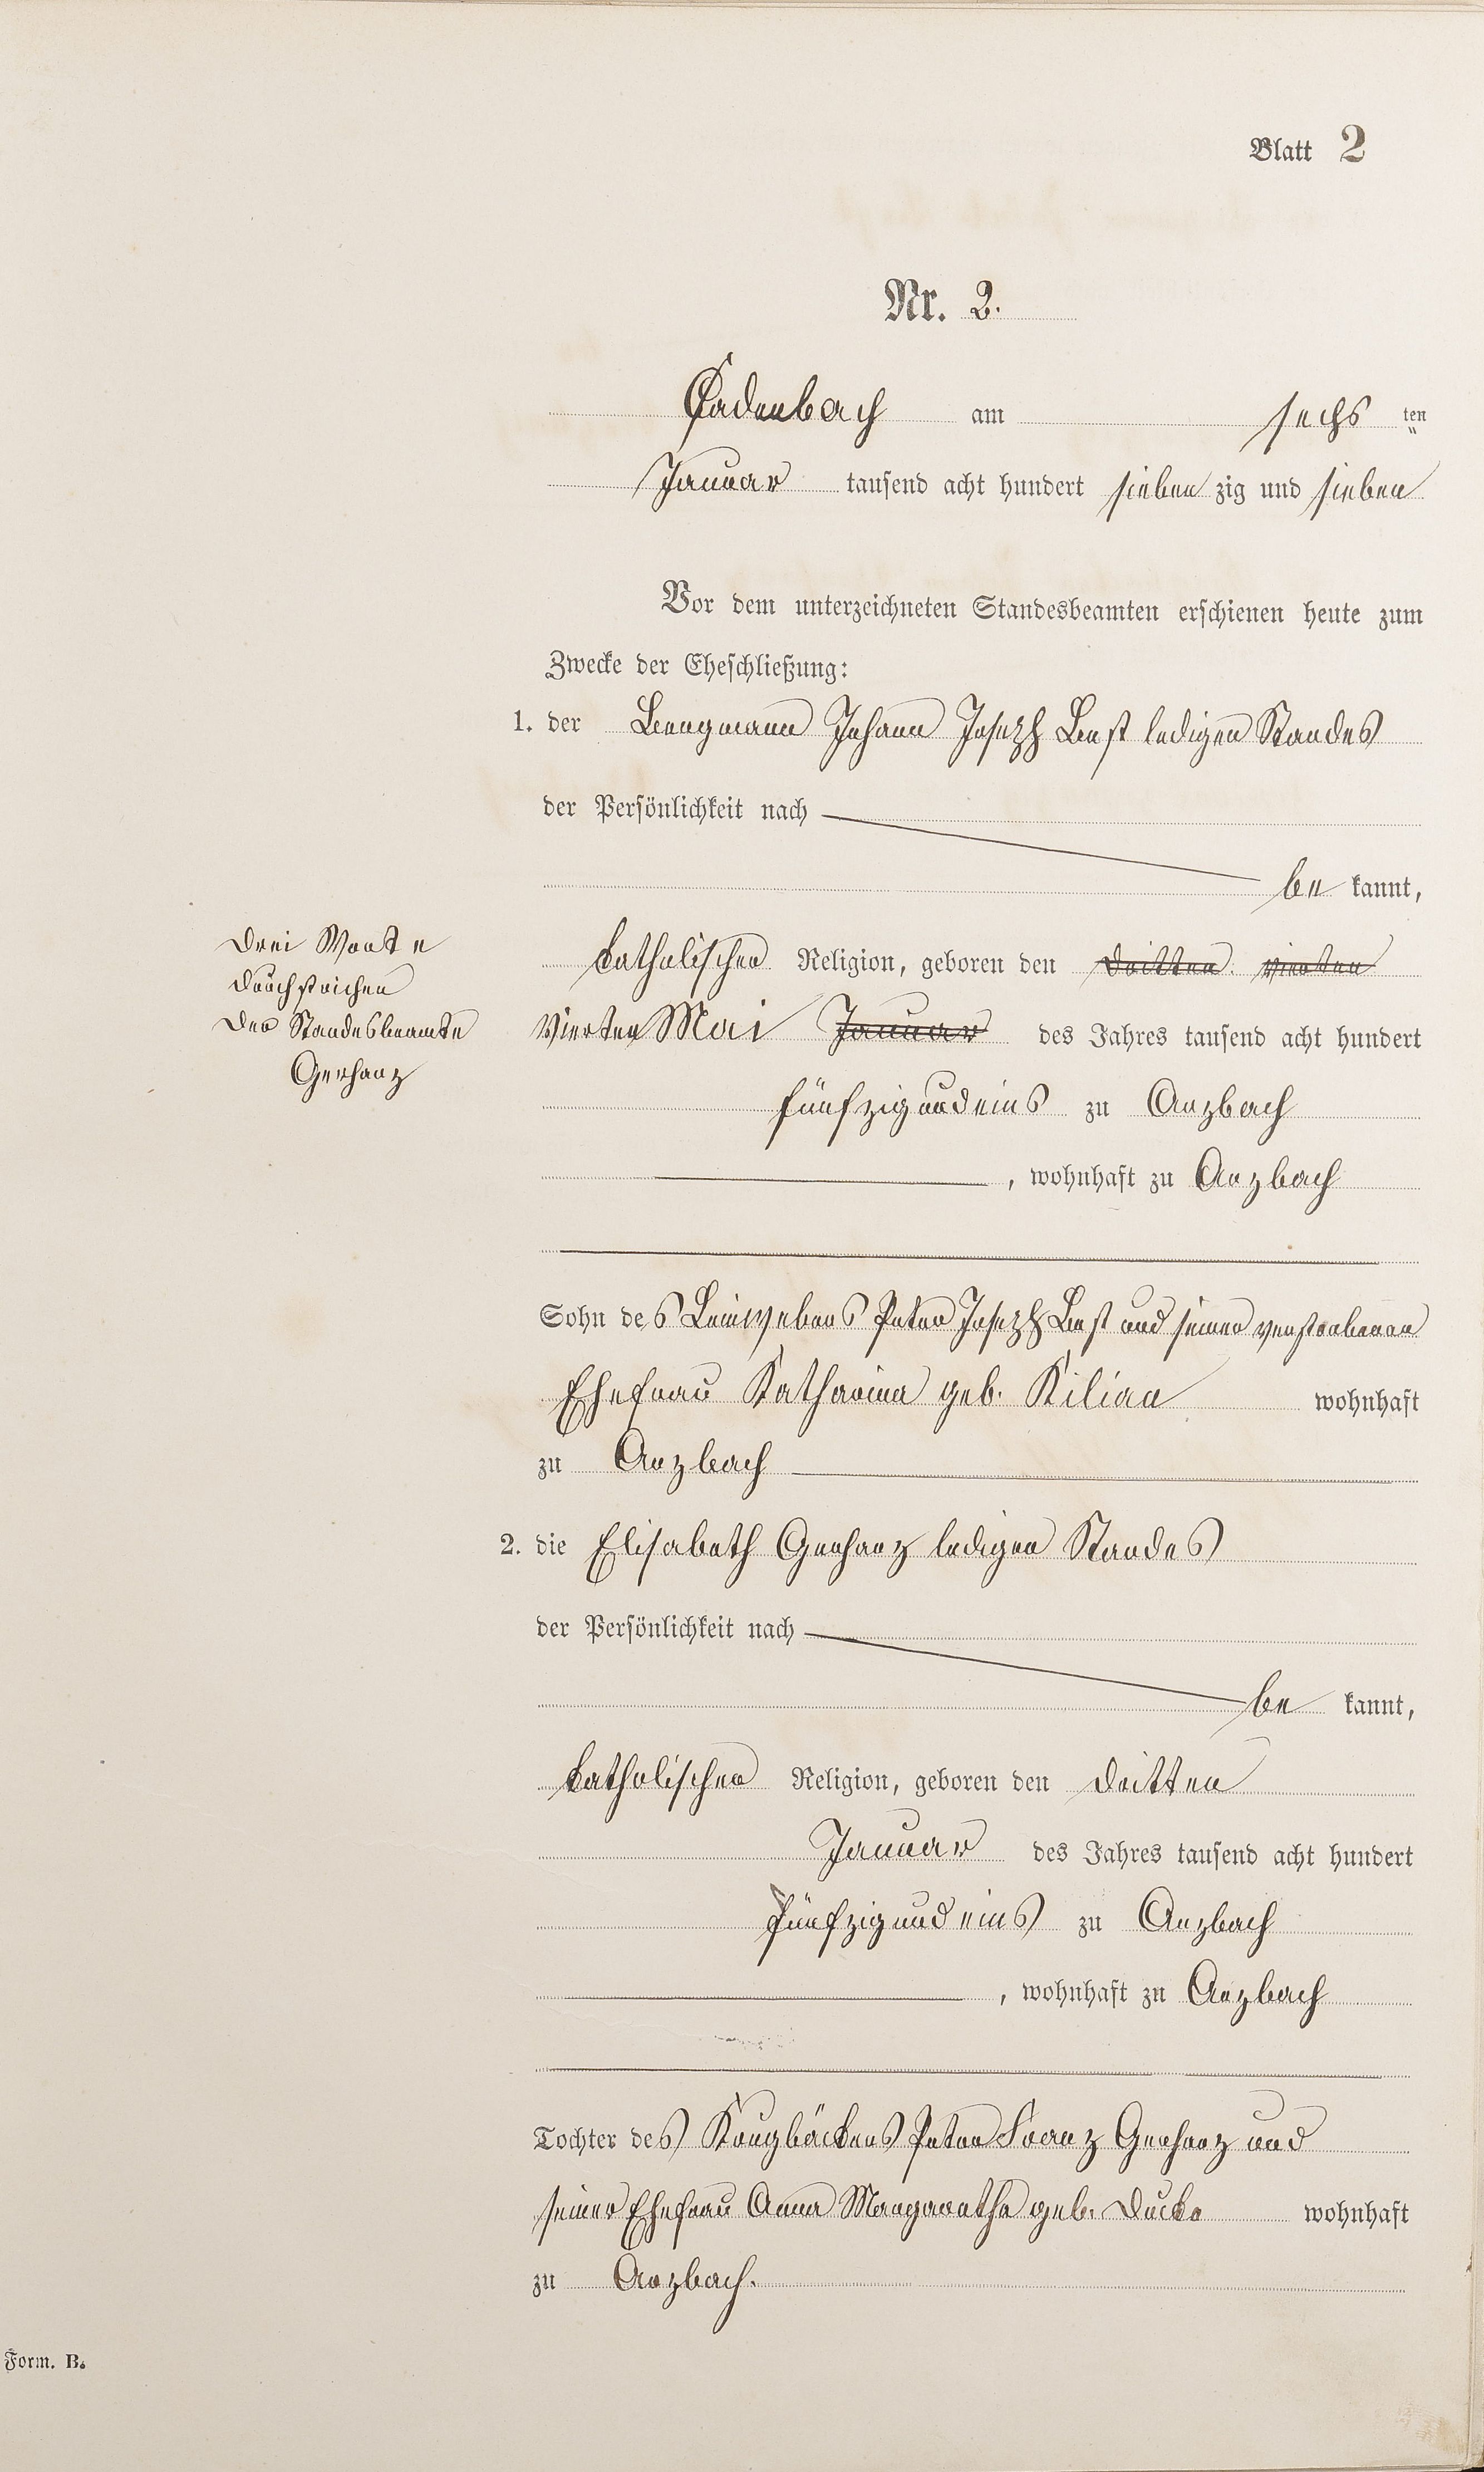 Blatt 2
Nr. 2.
Cadenbach am sechs ten
Januar tausend acht hundert sieben zig und sieben
Vor dem unterzeichneten Standesbeamten erschienen heute zum
Zwecke der Eheschließung:
1. der Bergmann Johann Joseph Best ledigen Standes
der Persönlichkeit nach
be kannt,
katholischer Religion, geboren den dritten vierten
Vierten Mai Januar des Jahres tausend acht hundert
fünfzig und eins zu Arzbach
, wohnhaft zu Arzbach
Drei Worte
durchstrichen
Der Standesbeamte
Gerharz
Sohn des Leinwebers Peter Joseph Best und seiner verstorbenen
Ehefrau Katharina geb. Kilian wohnhaft
zu Arzbach
2. die Elisabeth Gerharz ledigen Standes
der Persönlichkeit nach
be kannt,
katholischer Religion, geboren den dritten
Januar des Jahres tausend acht hundert
fünfzig und eins zu Arzbach
, wohnhaft zu Arzbach
Tochter des Krugbäckers Peter Franz Gerharz und
seiner Ehefrau Anna Margaretha geb. Ducke wohnhaft
zu Arzbach.
Form. B.